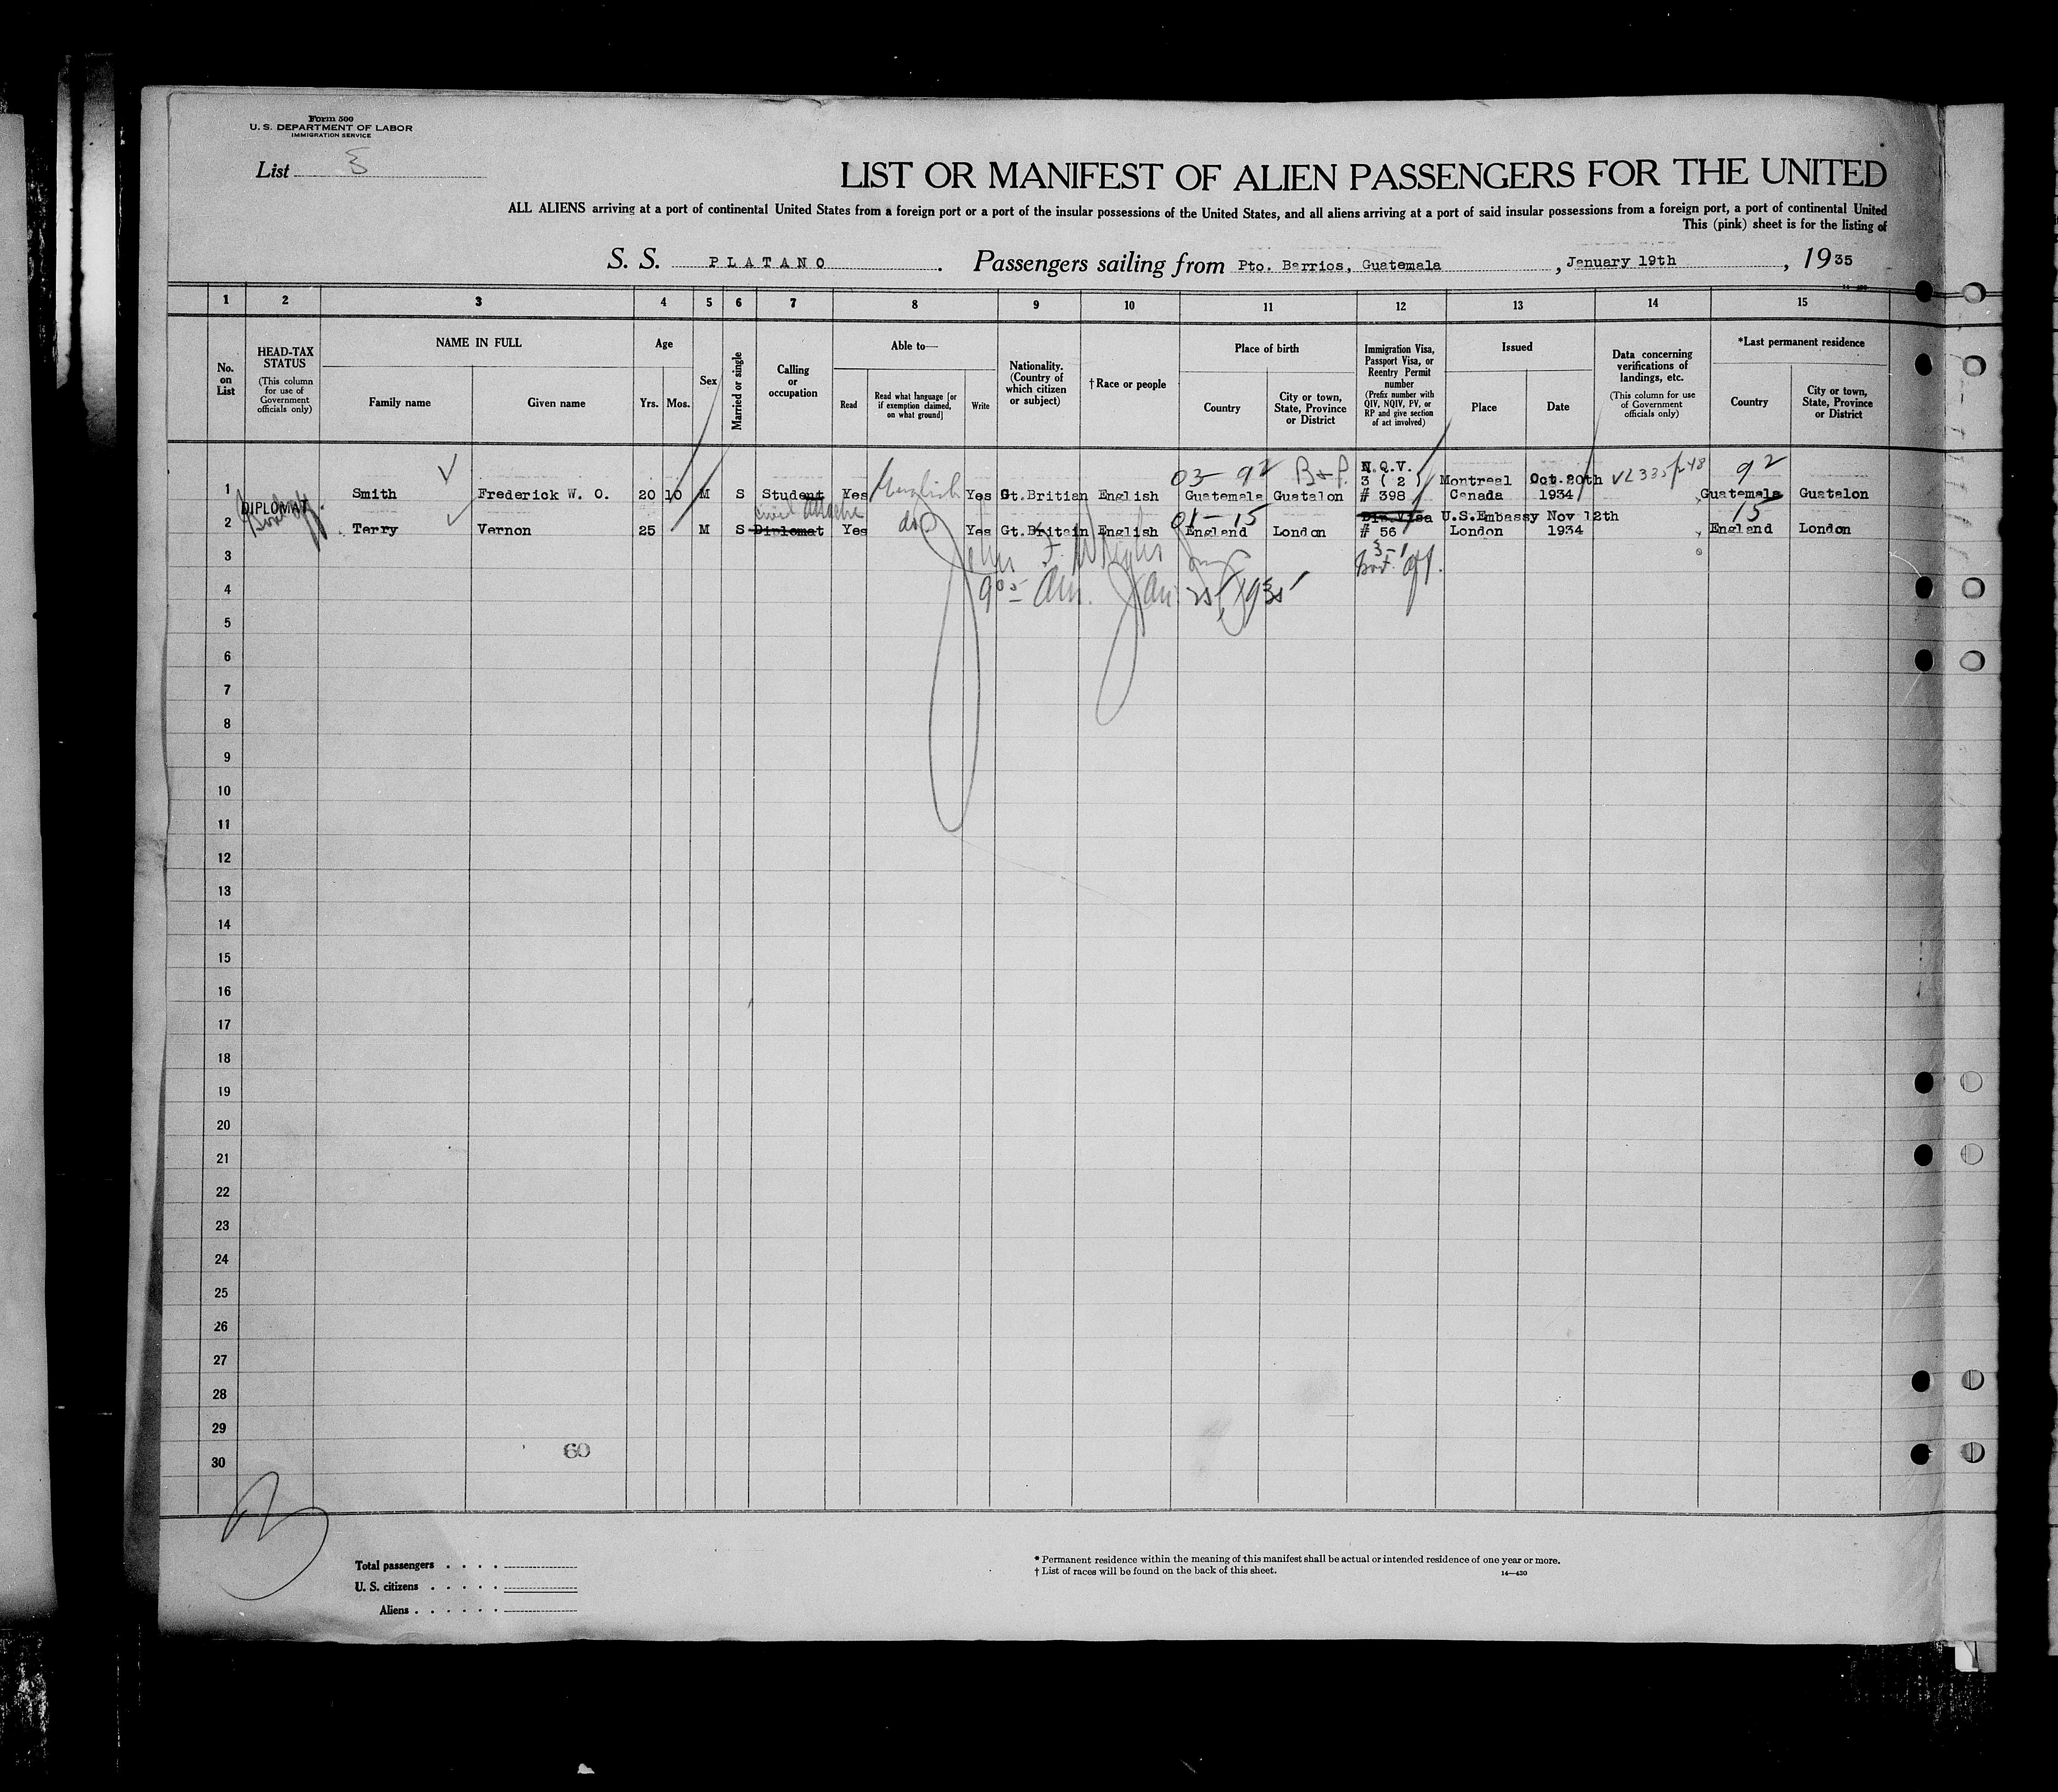 Form 500
U. S. DEPARTMENT OF LABOR
IMMIGRATION SERVICE
List
LIST OR MANIFEST OF ALIEN PASSENGERS FOR THE UNITED
ALL ALIENS arriving at a port of continental United States from a foreign port or a port of the insular possessions of the United States, and all aliens arriving at a port of said insular possessions from a foreign port, a port of continental United
This (pink) sheet is for the listing of
S. S. PLATANO. Passengers sailing from Pto. Barrios, Guatemala, January 19th, 1935
1 2 3 4 5 6 7 8 9 10 11 12 13 14 15
No. on List
HEAD-TAX STATUS
(This column for use of Government officials only)
NAME IN FULL
Family name
Given name
Age
Yrs. Mos.
Sex
Married or single
Calling or occupation
Able to—
Read
Read what language [or if exemption claimed, on what ground]
Write
Nationality. (Country of which citizen or subject)
† Race or people
Place of birth
Country
City or town, State, Province or District
Immigration Visa, Passport Visa, or Reentry Permit number
(Prefix number with QIV, NQIV, PV, or RP and give section of act involved)
Issued
Place
Date
Data concerning verifications of landings, etc.
(This column for use of Government officials only)
*Last permanent residence
Country
City or town, State, Province or District
03- 92 B+P. N.Q.V. 92
1 Smith Frederick W. O. 20 10 M S Student Yes English Yes Gt.Britian English Guatemala Guatalon 3 ( 2 ) # 398 Montreal Canada Oct.20th 1934 Guatemala Guatalon
DIPLOMAT
Civil Attache 01-15 15
2 Terry Vernon 25 M S Diplomat Yes do Yes Gt.Britain English England London Dip.Visa # 56 U.S.Embassy London Nov 12th 1934 England London
3 John F. 3-1
4 9 05 Am. Jan. 25, 1935
5
6
7
8
9
10
11
12
13
14
15
16
17
18
19
20
21
22
23
24
25
26
27
28
29
30
60
Total passengers
U. S. citizens
Aliens
* Permanent residence within the meaning of this manifest shall be actual or intended residence of one year or more.
† List of races will be found on the back of this sheet.
14—430